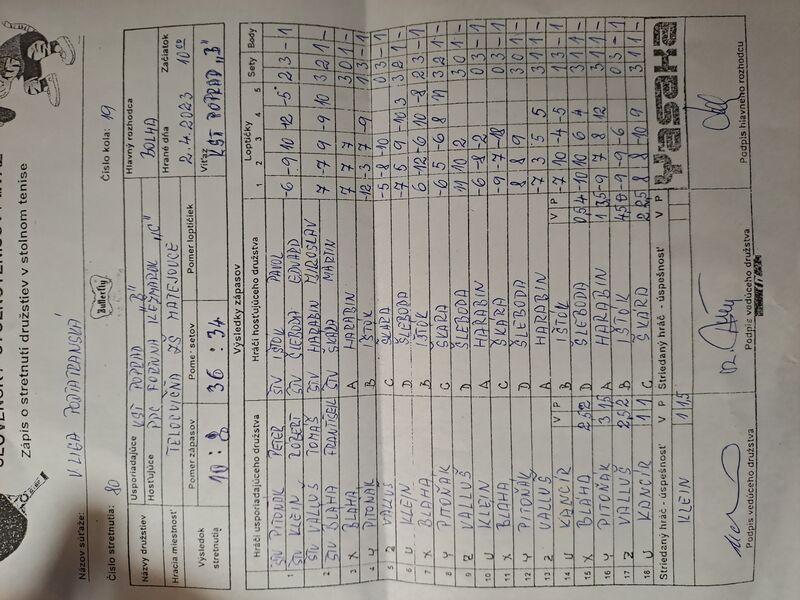 SLOVENSKÝ STOLNOTENISOVÝ
Zápis o stretnutí družstiev v stolnom tenise
Názov súťaže: V LIGA PODTATRANSKÁ
Číslo stretnutia: 80
Butterfly
Číslo kola: 19
Názvy družstiev
Usporiadajúce KST POPRAD "B"
Hlavný rozhodca
BOLHA
Hosťujúce PPC FORTUNA KEŽMAROK "C"
Hracia miestnosť TELOCVIČŇA ZŠ MATEJOVCE
Hrané dňa 2.4.2023
Začiatok 10 00
Výsledok stretnutia
Pomer zápasov 10 : 8
Pomer setov 36 : 34
Pomer loptičiek
Víťaz KST POPRAD "B"
Výsledky zápasov
Hráči usporiadajúceho družstva
Hráči hosťujúceho družstva
Loptičky
Sety
Body
1 2 3 4 5
1 ŠTV PITOŇÁK PETER ŠTV IŠTOK PAVOL -6 -9 10 12 -5 2 3 - 1
ŠTV KLEIN ROBERT ŠTV ŠLEBODA EDUARD
2 ŠTV VALLUŠ TOMÁŠ ŠTV HARABIN MIROSLAV 7 -7 9 -9 10 3 2 1 -
ŠTV BLAHA FRANTIŠEK ŠTV ŠKARA MARTIN
3 X BLAHA A HARABIN 7 7 7 3 0 1 -
4 Y PITOŇÁK B IŠTOK -12 -3 7 -9 1 3 - 1
5 Z VALLUŠ C ŠKARA -5 -8 -10 0 3 - 1
6 U KLEIN D ŠLEBODA -7 5 9 -10 3 3 2 1 -
7 X BLAHA B IŠTOK 6 -12 -6 10 -8 2 3 - 1
8 Y PITOŇÁK C ŠKARA -6 5 -6 8 11 3 2 1 -
9 Z VALLUŠ D ŠLEBODA 11 10 2 3 0 1 -
10 U KLEIN A HARABIN -6 -8 -2 0 3 - 1
11 X BLAHA C ŠKARA -9 -7 -18 0 3 - 1
12 Y PITOŇÁK D ŠLEBODA 8 8 9 3 0 1 -
13 Z VALLUŠ A HARABIN -7 3 5 5 3 1 1 -
14 U KANCÍR V P B IŠTOK V P -7 10 -4 -5 1 3 - 1
15 X BLAHA 2,5 2 D ŠLEBODA 0,5 4 -10 10 6 4 3 1 1 -
16 Y PITOŇÁK 3 1,5 A HARABIN 1 3,5 -9 7 8 12 3 1 1 -
17 Z VALLUŠ 2,5 2 B IŠTOK 4,5 0 -9 -9 -6 0 3 - 1
18 U KANCÍR 1 1 C ŠKARA 2 2,5 8 8 -10 9 3 1 1 -
Striedaný hráč - úspešnosť V P
Striedaný hráč - úspešnosť V P
KLEIN 1 1,5
Yasaka
Podpis vedúceho družstva
Podpis vedúceho družstva
Podpis hlavného rozhodcu